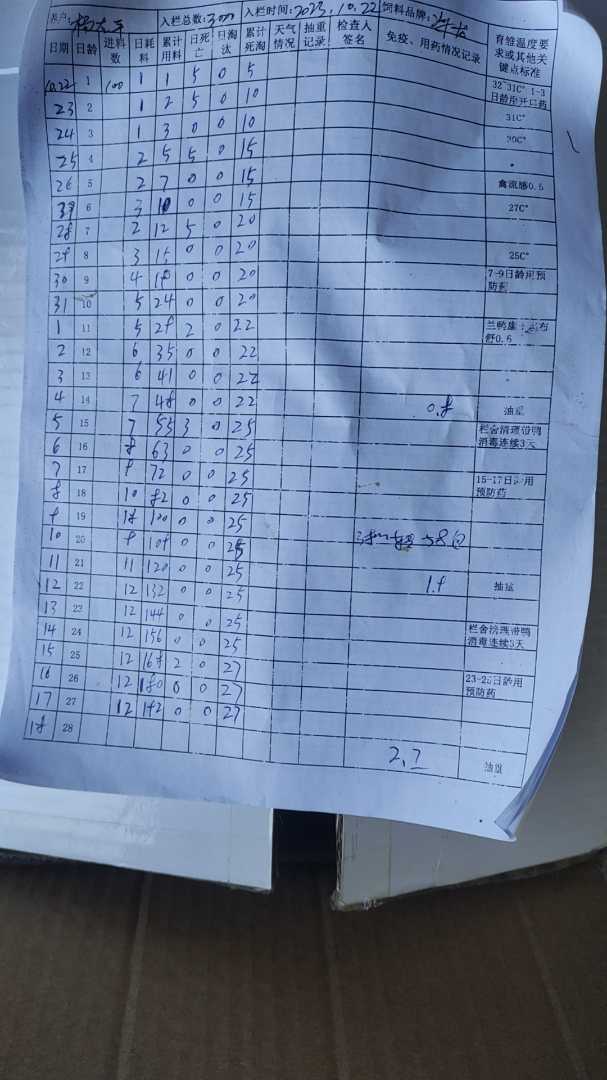 入栏总数:3000 入栏时间:2023.10.22 饲料品牌:
日期 日龄 进料数 日耗料 累计用料 日死亡 日淘汰 累计死淘 天气情况 抽重记录 检查人签名 免疫、用药情况记录 育雏温度要求或其他关键点标准
10.22 1 100 1 1 5 0 5 32-31C° 1-3日龄用开口药
23 2 1 2 5 0 10 31C°
24 3 1 3 0 0 10 30C°
25 4 2 5 5 0 15
26 5 2 7 0 0 15 禽流感0.5
6 3 10 0 0 15 27C°
28 7 2 12 5 0 20
29 8 3 15 0 0 20 25C°
30 9 4 19 0 0 20 7-9日龄用预防药
31 10 5 24 0 0 20
1 11 5 29 2 0 22
2 12 6 35 0 0 22
3 13 6 41 0 0 22
4 14 7 48 0 0 22 0.8
5 15 7 55 3 0 25 栏舍清理带鸭消毒连续3天
6 16 8 63 0 0 25
7 17 9 72 0 0 25 15-17日龄用预防药
8 18 10 82 0 0 25
9 19 18 100 0 0 25
10 20 9 109 0 0 25
11 21 11 120 0 0 25
12 22 12 132 0 0 25
13 23 12 144 0 0 25
14 24 12 156 0 0 25 栏舍清理带鸭消毒连续3天
15 25 12 168 2 0 27
16 26 12 180 0 0 27 23-25日龄用预防药
17 27 12 192 0 0 27
18 28 2.7